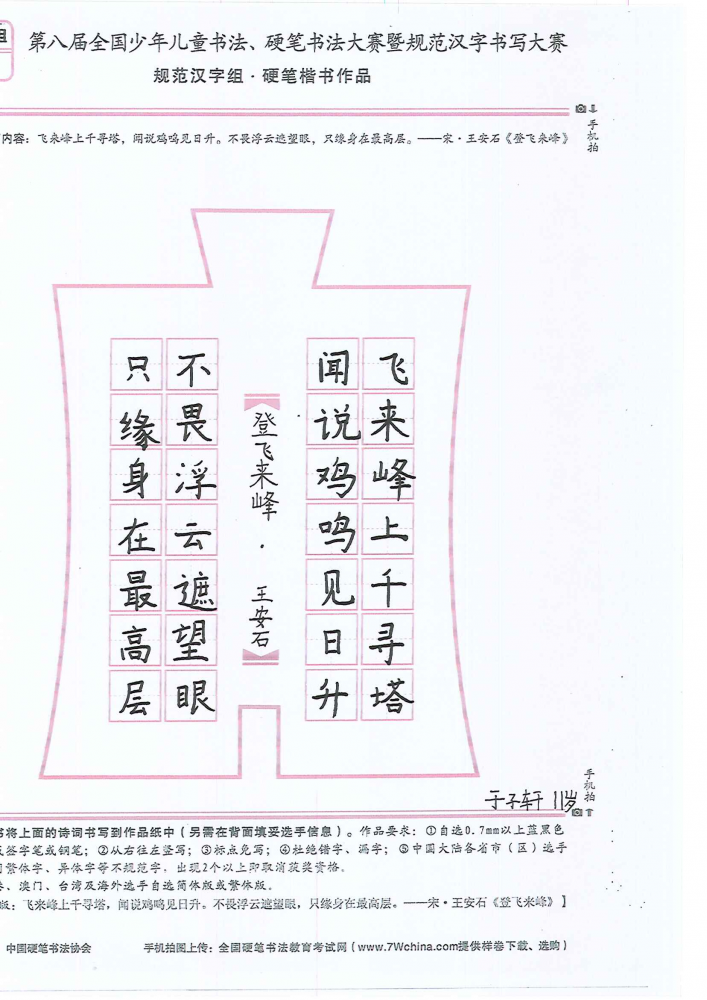 组
第八届全国少年儿童书法、硬笔书法大赛暨规范汉字书写大赛
规范汉字组·硬笔楷书作品
手机拍
内容：飞来峰上千寻塔，闻说鸡鸣见日升。不畏浮云遮望眼，只缘身在最高层。——宋·王安石《登飞来峰》
飞来峰上千寻塔
闻说鸡鸣见日升
登飞来峰·王安石
不畏浮云遮望眼
只缘身在最高层
于子轩 11岁
手机拍
将上面的诗词书写到作品纸中（另需在背面填妥选手信息）。作品要求：①自选0.7mm以上蓝黑色
签字笔或钢笔；②从右往左竖写；③标点免写；④杜绝错字、漏字；⑤中国大陆各省市（区）选手
繁体字、异体字等不规范字，出现2个以上即取消获奖资格。
、澳门、台湾及海外选手自选简体版或繁体版。
版：飞来峰上千寻塔，闻说鸡鸣见日升。不畏浮云遮望眼，只缘身在最高层。——宋·王安石《登飞来峰》】
中国硬笔书法协会 手机拍图上传：全国硬笔书法教育考试网（www.7Wchina.com提供样卷下载、选购）